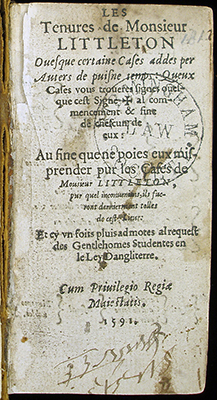 LES
Tenures de Monsieur
LITTLETON
Ouesque certaine Cases addes per
Auters de puisne temps: Queux
Cases vous troueres signes ouesque
cest Signe, ✠ al com-
mencement & fine
de chescun de
eux:
Au fine que ne poies eux mis-
prender pur les Cases de
Monsieur LITTLETON,
pur quel inconuenience, ils fue-
ront dernierment tolles
de cest Liuer:
Et cy vn foits pluis admotes al request
des Gentlehomes Studentes en
le Ley Dangliterre.
Cum Priuilegio Regiæ
Maiestatis.
1591.
LAW